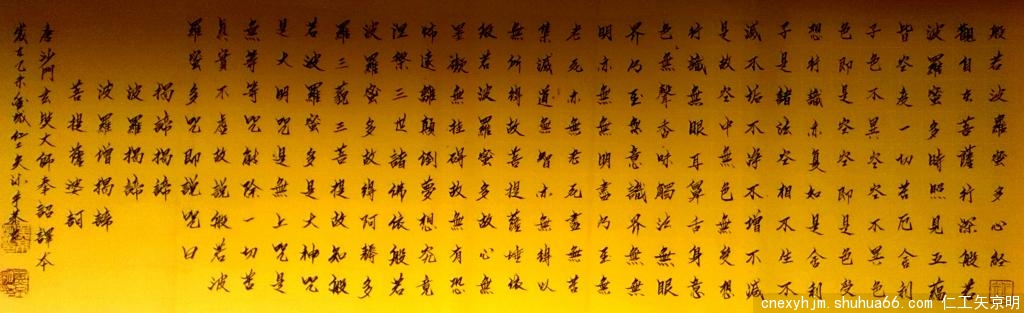 般若波羅蜜多心經
觀自在菩薩行深般若
波羅蜜多時照見五蘊
皆空度一切苦厄舍利
子色不異空空不異色
色即是空空即是色受
想行識亦复如是舍利
子是諸法空相不生不
滅不垢不淨不增不減
是故空中無色無受想
行識無眼耳鼻舌身意
色無聲香味觸法無眼
界乃至無意識界無無
明亦無無明盡乃至無
老死亦無老死盡無苦
集滅道無智亦無得以
無所得故菩提薩埵依
般若波羅蜜多故心無
罣礙無罣礙故無有恐
怖遠離顛倒夢想究竟
涅槃三世諸佛依般若
波羅蜜多故得阿耨多
羅三藐三菩提故知般
若波羅蜜多是大神咒
是大明咒是無上咒是
無等等咒能除一切苦
真實不虛故說般若波
羅蜜多咒即說咒曰
揭諦揭諦
波羅揭諦
波羅僧揭諦
菩提薩婆訶
唐沙門玄奘大師奉詔譯本
歲在乙未仁工矢沐手恭書
cnexyhjm.shuhua66.com 仁工矢京明